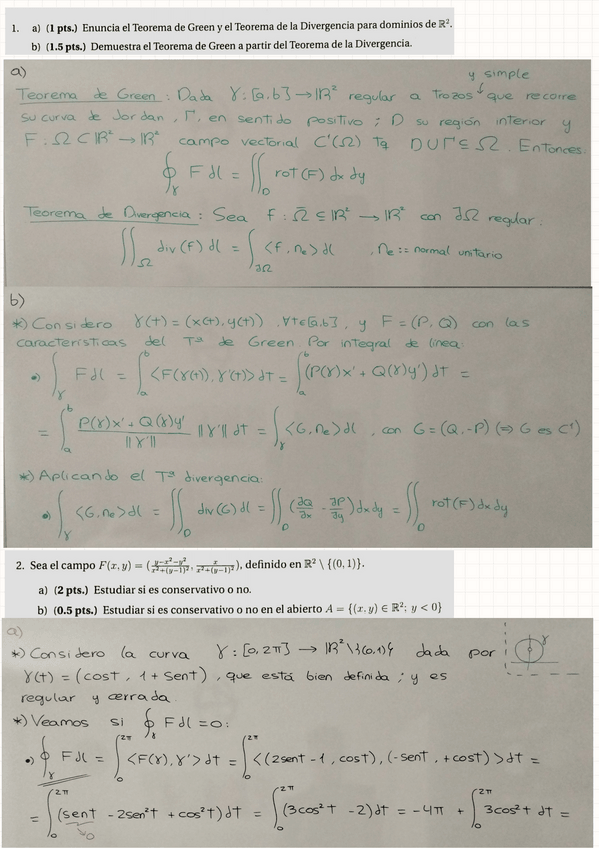 1. a) (1 pts.) Enuncia el Teorema de Green y el Teorema de la Divergencia para dominios de ℝ².
b) (1.5 pts.) Demuestra el Teorema de Green a partir del Teorema de la Divergencia.
a)
y simple
Teorema de Green : Dada γ : [a,b] → ℝ² regular a trozos que recorre
su curva de Jordan, Γ, en sentido positivo ; D su región interior y
F : Ω ⊂ ℝ² → ℝ² campo vectorial C'(Ω) Tq D ∪ Γ ⊆ Ω. Entonces:
∮_γ F dl = ∬_D rot(F) dx dy
Teorema de Divergencia : Sea f : Ω̄ ⊆ ℝ² → ℝ² con ∂Ω regular.
∬_Ω div(f) dl = ∫_∂Ω <f, n_e> dl , n_e :: normal unitario
b)
*) Considero γ(t) = (x(t), y(t)) , ∀t∈[a,b], y F = (P, Q) con las
características del Tª de Green. Por integral de línea:
•) ∫_γ F dl = ∫_a^b <F(γ(t)), γ'(t)> dt = ∫_a^b (P(γ)x' + Q(γ)y') dt =
= ∫_a^b (P(γ)x' + Q(γ)y') / ||γ'|| ||γ'|| dt = ∫_γ <G, n_e> dl , con G = (Q, -P) (⇒ G es C')
*) Aplicando el Tª divergencia:
•) ∫_γ <G, n_e> dl = ∬_D div(G) dl = ∬_D (∂Q/∂x - ∂P/∂y) dx dy = ∬_D rot(F) dx dy
2. Sea el campo F(x, y) = ((y−x²−y²)/(x²+(y−1)²), x/(x²+(y−1)²)), definido en ℝ² \ {(0, 1)}.
a) (2 pts.) Estudiar si es conservativo o no.
b) (0.5 pts.) Estudiar si es conservativo o no en el abierto A = {(x, y) ∈ ℝ²; y < 0}
a)
*) Considero la curva γ : [0, 2π] → ℝ² \ {(0,1)} dada por
γ
γ(t) = (cost, 1 + sent) , que está bien definida ; y es
regular y cerrada.
*) Veamos si ∮_γ F dl = 0 :
•) ∮_γ F dl = ∫_0^2π <F(γ), γ'> dt = ∫_0^2π <(-2sent - 1, cost), (-sent, +cost)> dt =
= ∫_0^2π (sent - 2sen²t + cos²t) dt = ∫_0^2π (3cos²t - 2) dt = -4π + ∫_0^2π 3cos²t dt =
→ 0